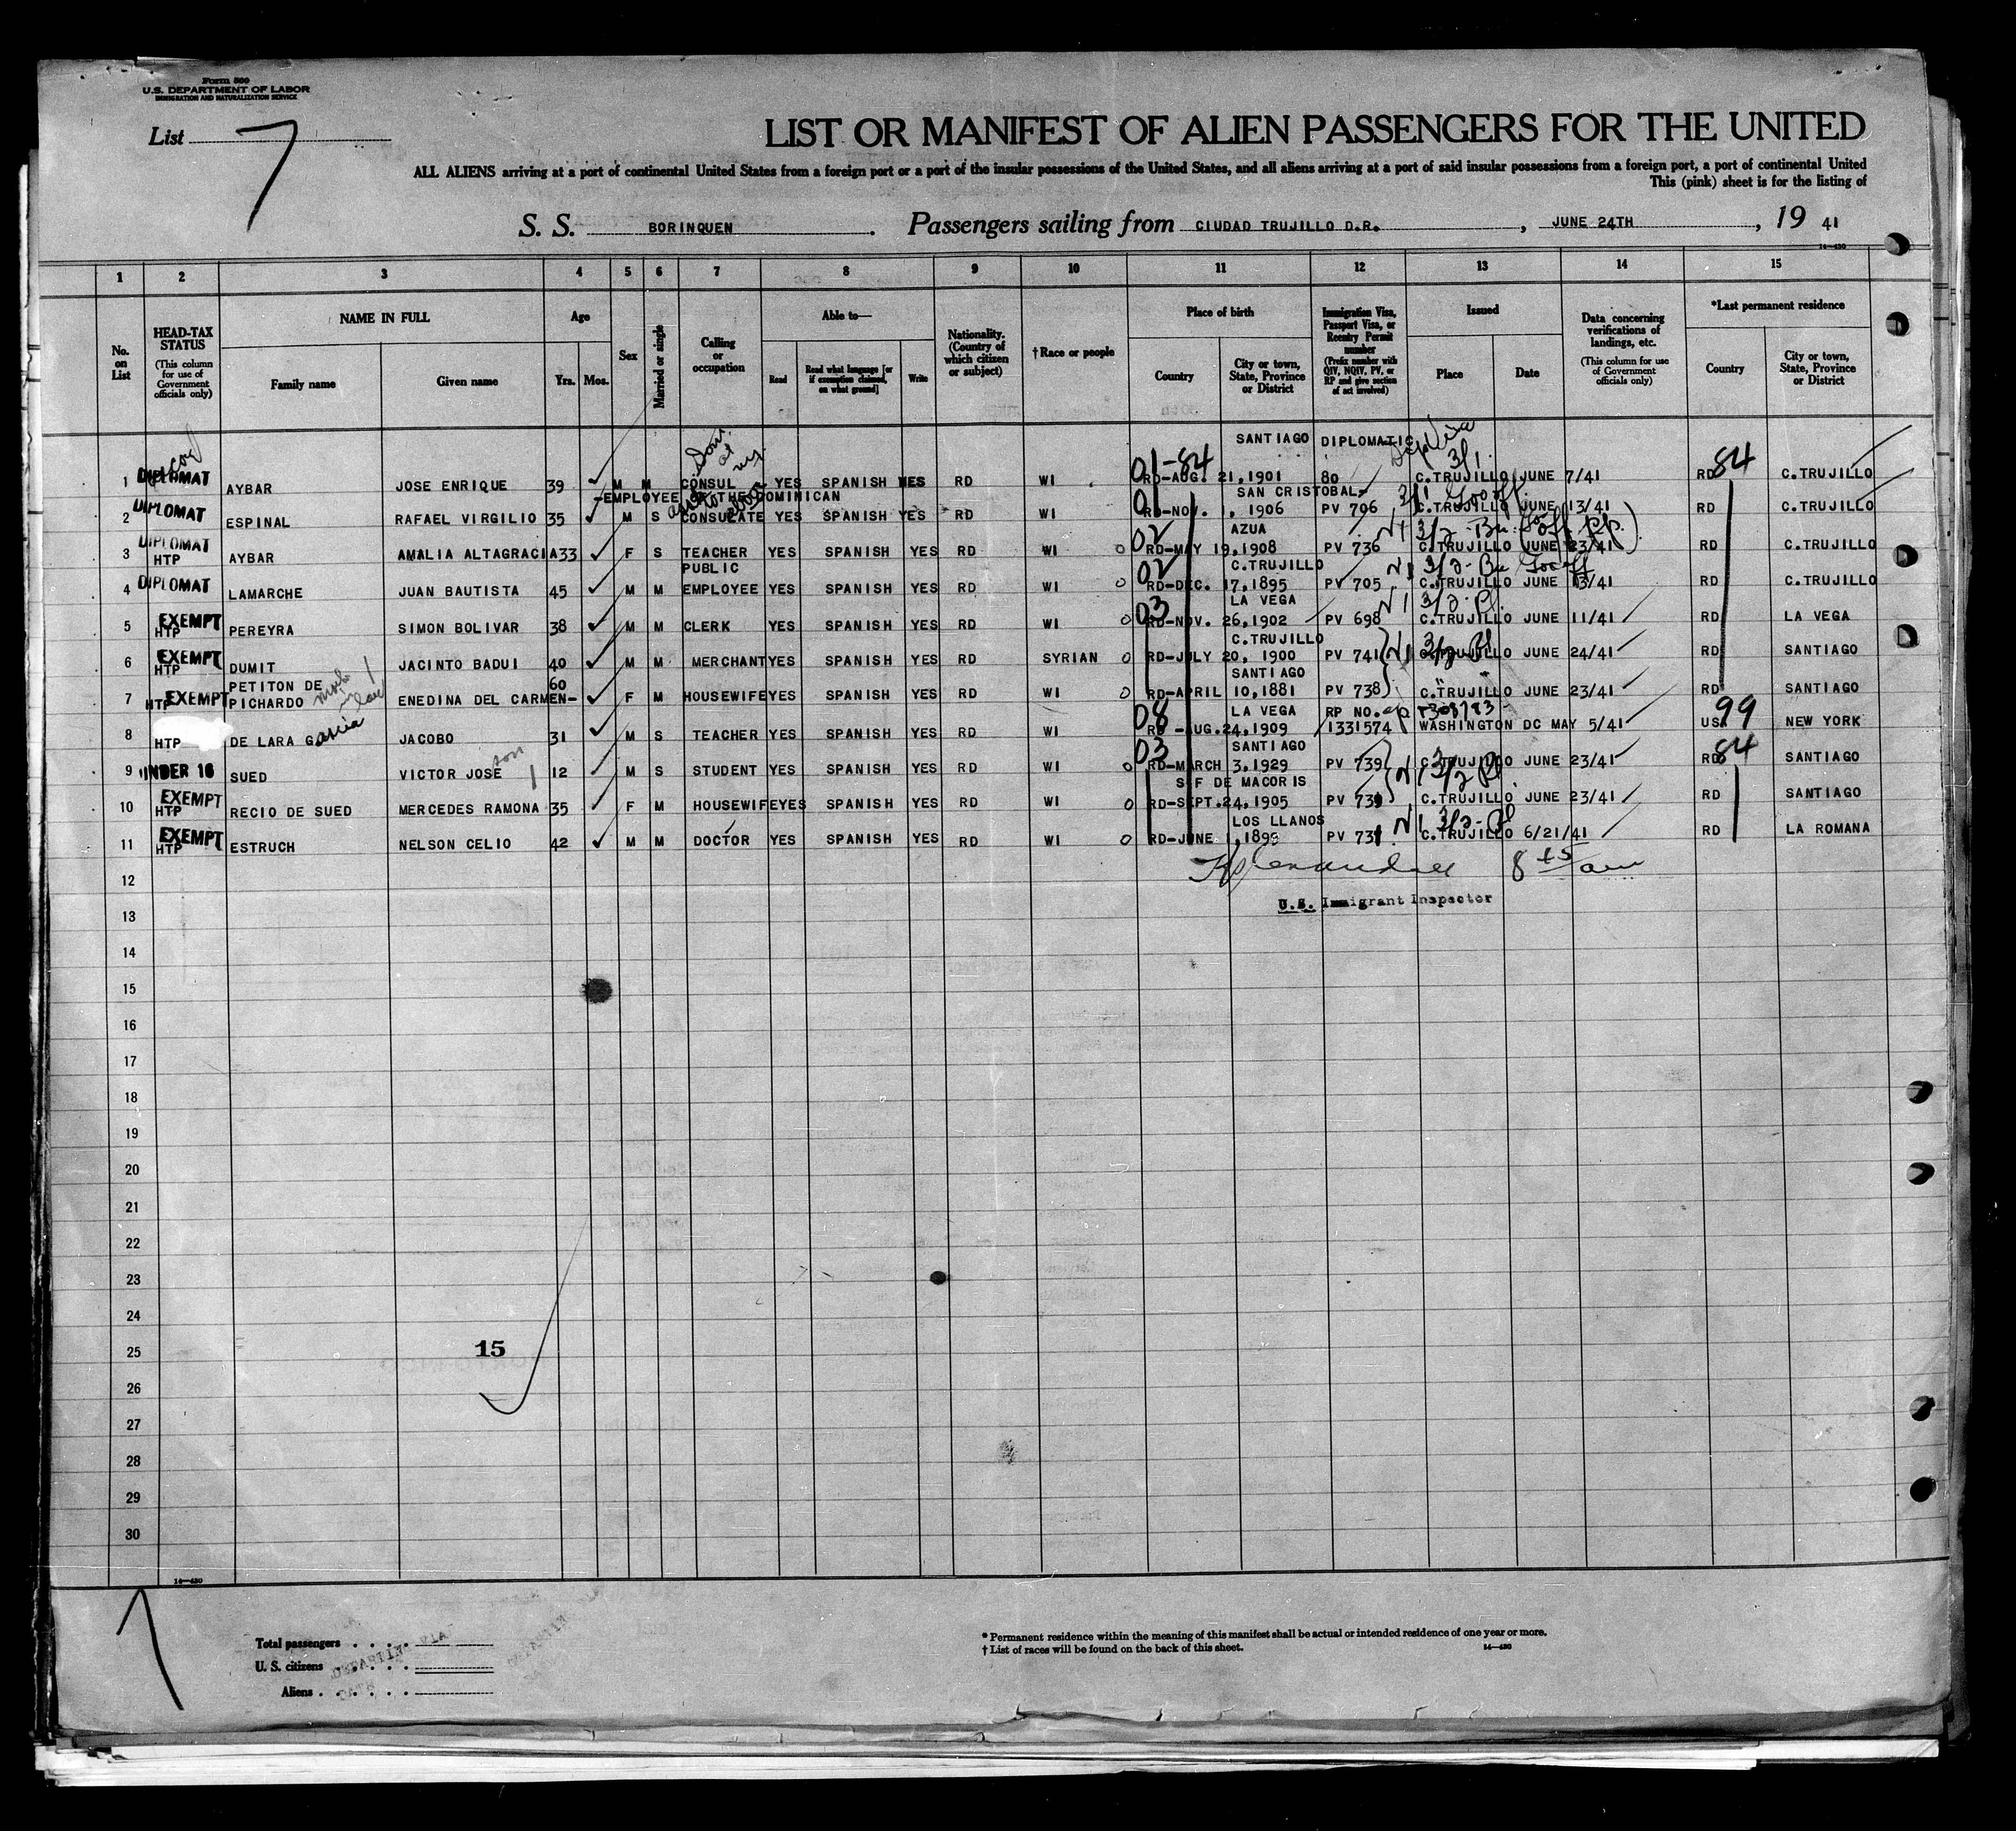 Form 500
U.S. DEPARTMENT OF LABOR
IMMIGRATION AND NATURALIZATION SERVICE
List 7
LIST OR MANIFEST OF ALIEN PASSENGERS FOR THE UNITED
ALL ALIENS arriving at a port of continental United States from a foreign port or a port of the insular possessions of the United States, and all aliens arriving at a port of said insular possessions from a foreign port, a port of continental United
This (pink) sheet is for the listing of
S. S. BORINQUEN. Passengers sailing from CIUDAD TRUJILLO D.R., JUNE 24TH, 19 41
14-430
1 2 3 4 5 6 7 8 9 10 11 12 13 14 15
No. on List
HEAD-TAX STATUS (This column for use of Government officials only)
NAME IN FULL
Family name
Given name
Age
Yrs. Mos.
Sex
Married or single
Calling or occupation
Able to—
Read
Read what language [or if exemption claimed, on what ground]
Write
Nationality. (Country of which citizen or subject)
†Race or people
Place of birth
Country
City or town, State, Province or District
Immigration Visa, Passport Visa, or Reentry Permit number (Prefix number with QIV, NQIV, PV, or RP and give section of act involved)
Issued
Place
Date
Data concerning verifications of landings, etc. (This column for use of Government officials only)
*Last permanent residence
Country
City or town, State, Province or District
SANTIAGO DIPLOMATIC
1 DIPLOMAT AYBAR JOSE ENRIQUE 39 M M CONSUL YES SPANISH YES RD WI 01-84 RD-AUG. 21,1901 80 3/1 C.TRUJILLO JUNE 7/41 RD 84 C.TRUJILLO
-EMPLOYEE OF THE DOMINICAN SAN CRISTOBAL-
2 DIPLOMAT ESPINAL RAFAEL VIRGILIO 35 M S CONSULATE YES SPANISH YES RD WI 01 RD-NOV. 1, 1906 PV 706 C.TRUJILLO JUNE 13/41 RD C.TRUJILLO
AZUA
3 DIPLOMAT HTP AYBAR AMALIA ALTAGRACIA 33 F S TEACHER YES SPANISH YES RD WI 0 02 RD-MAY 19,1908 PV 736 C.TRUJILLO JUNE 23/41 RD C.TRUJILLO
PUBLIC C.TRUJILLO
4 DIPLOMAT LAMARCHE JUAN BAUTISTA 45 M M EMPLOYEE YES SPANISH YES RD WI 0 02 RD-DEC. 17,1895 PV 705 C.TRUJILLO JUNE 13/41 RD C.TRUJILLO
LA VEGA
5 EXEMPT HTP PEREYRA SIMON BOLIVAR 38 M M CLERK YES SPANISH YES RD WI 0 03 RD-NOV. 26,1902 PV 698 C.TRUJILLO JUNE 11/41 RD LA VEGA
C.TRUJILLO
6 EXEMPT HTP DUMIT JACINTO BADUI 40 M M MERCHANT YES SPANISH YES RD SYRIAN 0 RD-JULY 20, 1900 PV 741 C.TRUJILLO JUNE 24/41 RD SANTIAGO
PETITON DE 60 SANTIAGO
7 HTP EXEMPT PICHARDO ENEDINA DEL CARMEN- F M HOUSEWIFE YES SPANISH YES RD WI 0 RD-APRIL 10,1881 PV 738 C.TRUJILLO JUNE 23/41 RD SANTIAGO
LA VEGA RP NO.
8 HTP DE LARA Garcia JACOBO 31 M S TEACHER YES SPANISH YES RD WI 08 RD -AUG.24,1909 1331574 WASHINGTON DC MAY 5/41 US 99 NEW YORK
son SANTIAGO
9 UNDER 16 SUED VICTOR JOSE 12 M S STUDENT YES SPANISH YES RD WI 0 03 RD-MARCH 3,1929 PV 739 C.TRUJILLO JUNE 23/41 RD 84 SANTIAGO
S F DE MACORIS
10 EXEMPT HTP RECIO DE SUED MERCEDES RAMONA 35 F M HOUSEWIFE YES SPANISH YES RD WI 0 RD-SEPT.24,1905 PV 739 C.TRUJILLO JUNE 23/41 RD SANTIAGO
LOS LLANOS
11 EXEMPT HTP ESTRUCH NELSON CELIO 42 M M DOCTOR YES SPANISH YES RD WI 0 RD-JUNE 1,1899 PV 731 C.TRUJILLO 6/21/41 RD LA ROMANA
12 8 45 am
U.S. Immigrant Inspector
13
14
15
16
17
18
19
20
21
22
23
24
15
25
26
27
28
29
30
14-430
Total passengers
U. S. citizens
Aliens
* Permanent residence within the meaning of this manifest shall be actual or intended residence of one year or more.
† List of races will be found on the back of this sheet.
14-430